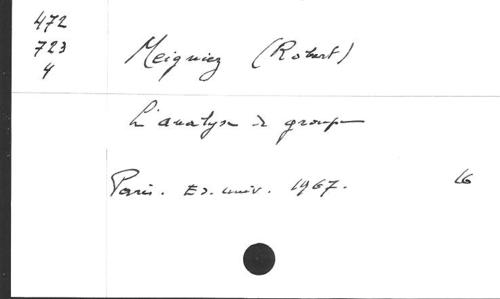 472
723
4
Meigniez (Robert)
L'analyse de groupe
Paris. Ed. univ. 1967. 16